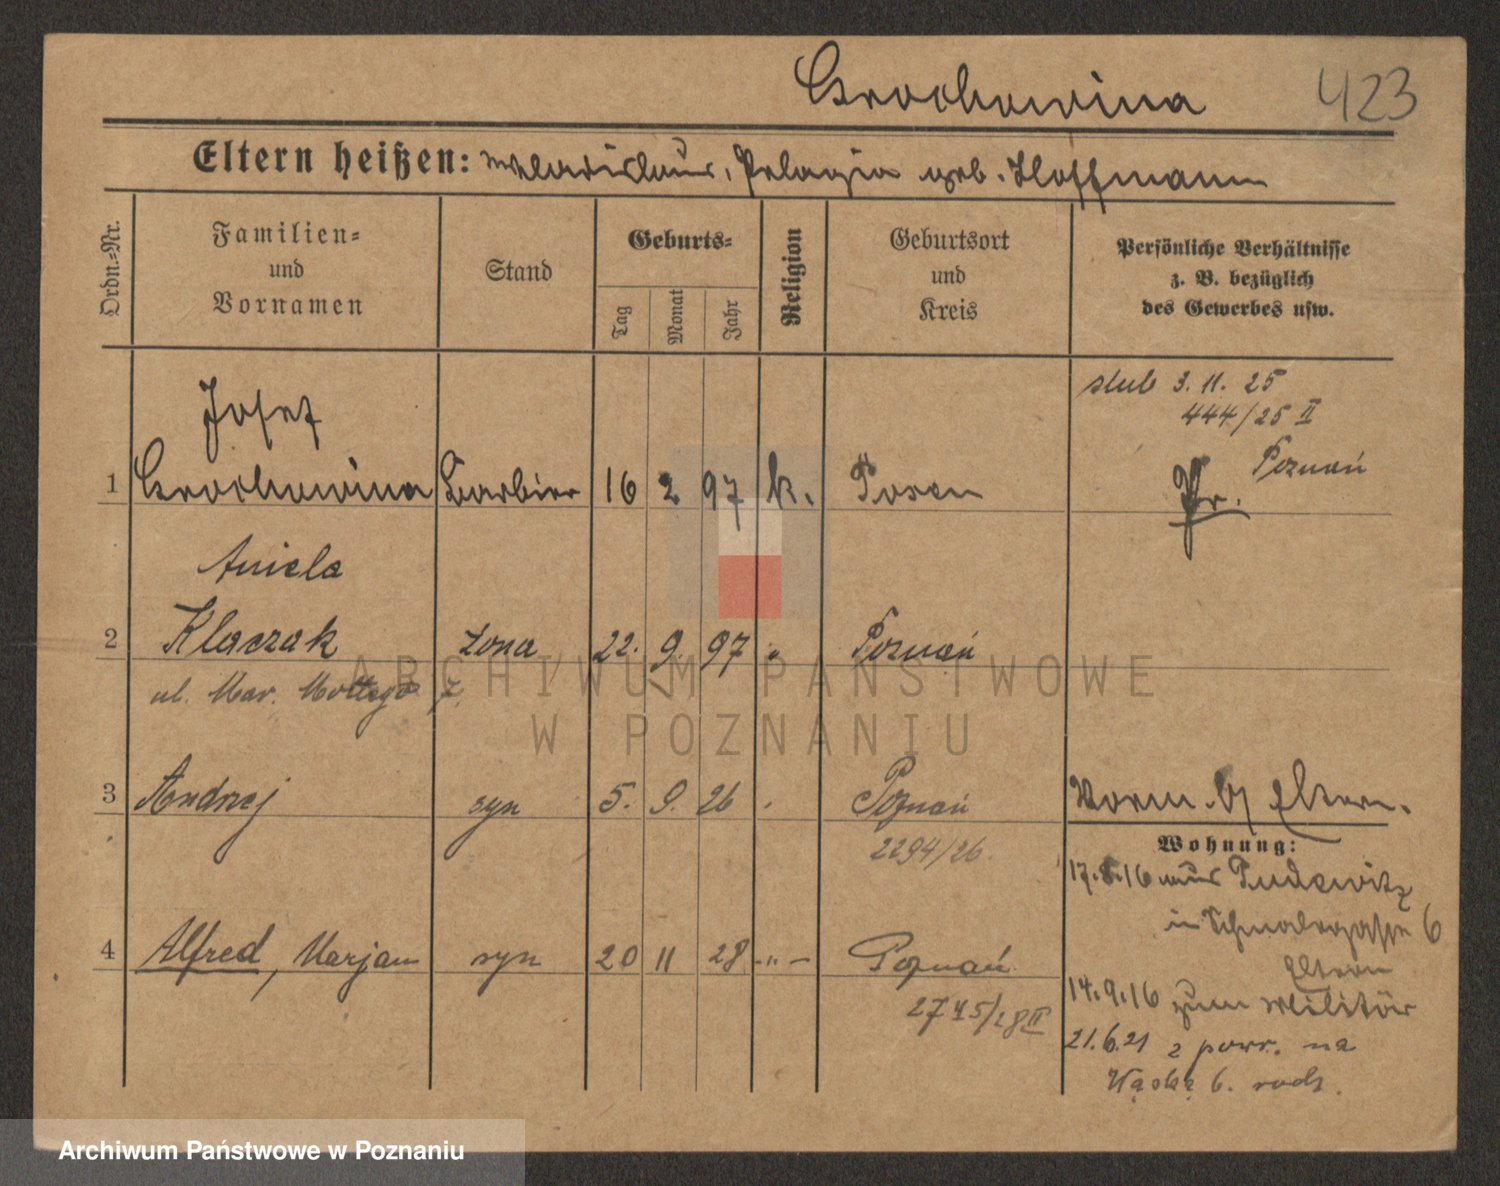 Grochowina
423
Eltern heißen: Wladislaus, Pelagia geb. Hoffmann
Ordn.-Nr.
Familien-
und
Vornamen
Stand
Geburts-
Tag
Monat
Jahr
Religion
Geburtsort
und
Kreis
Persönliche Verhältnisse
z. B. bezüglich
des Gewerbes usw.
slub 3. 11. 25
444/25 II
Poznań
Josef
1 Grochowina Barbier 16 2 97 k. Posen
Pr.
Aniela
2 Klaczak żona 22. 9. 97 " Poznań
ul. Mar. Mottego 7.
3 Andrzej syn 5. 9. 26 Poznań
2294/26.
Vorm. b/ Eltern.
Wohnung:
17.8.16 aus Pudewitz
in Schmalegasse 6
Eltern
4 Alfred, Marjan syn 20 11 28 -"- Poznań
2745/28 II
14.9.16 zum Militär
21.6.21 z powr. na
Wąska 6. rodz.
ARCHIWUM PAŃSTWOWE
W POZNANIU
Archiwum Państwowe w Poznaniu